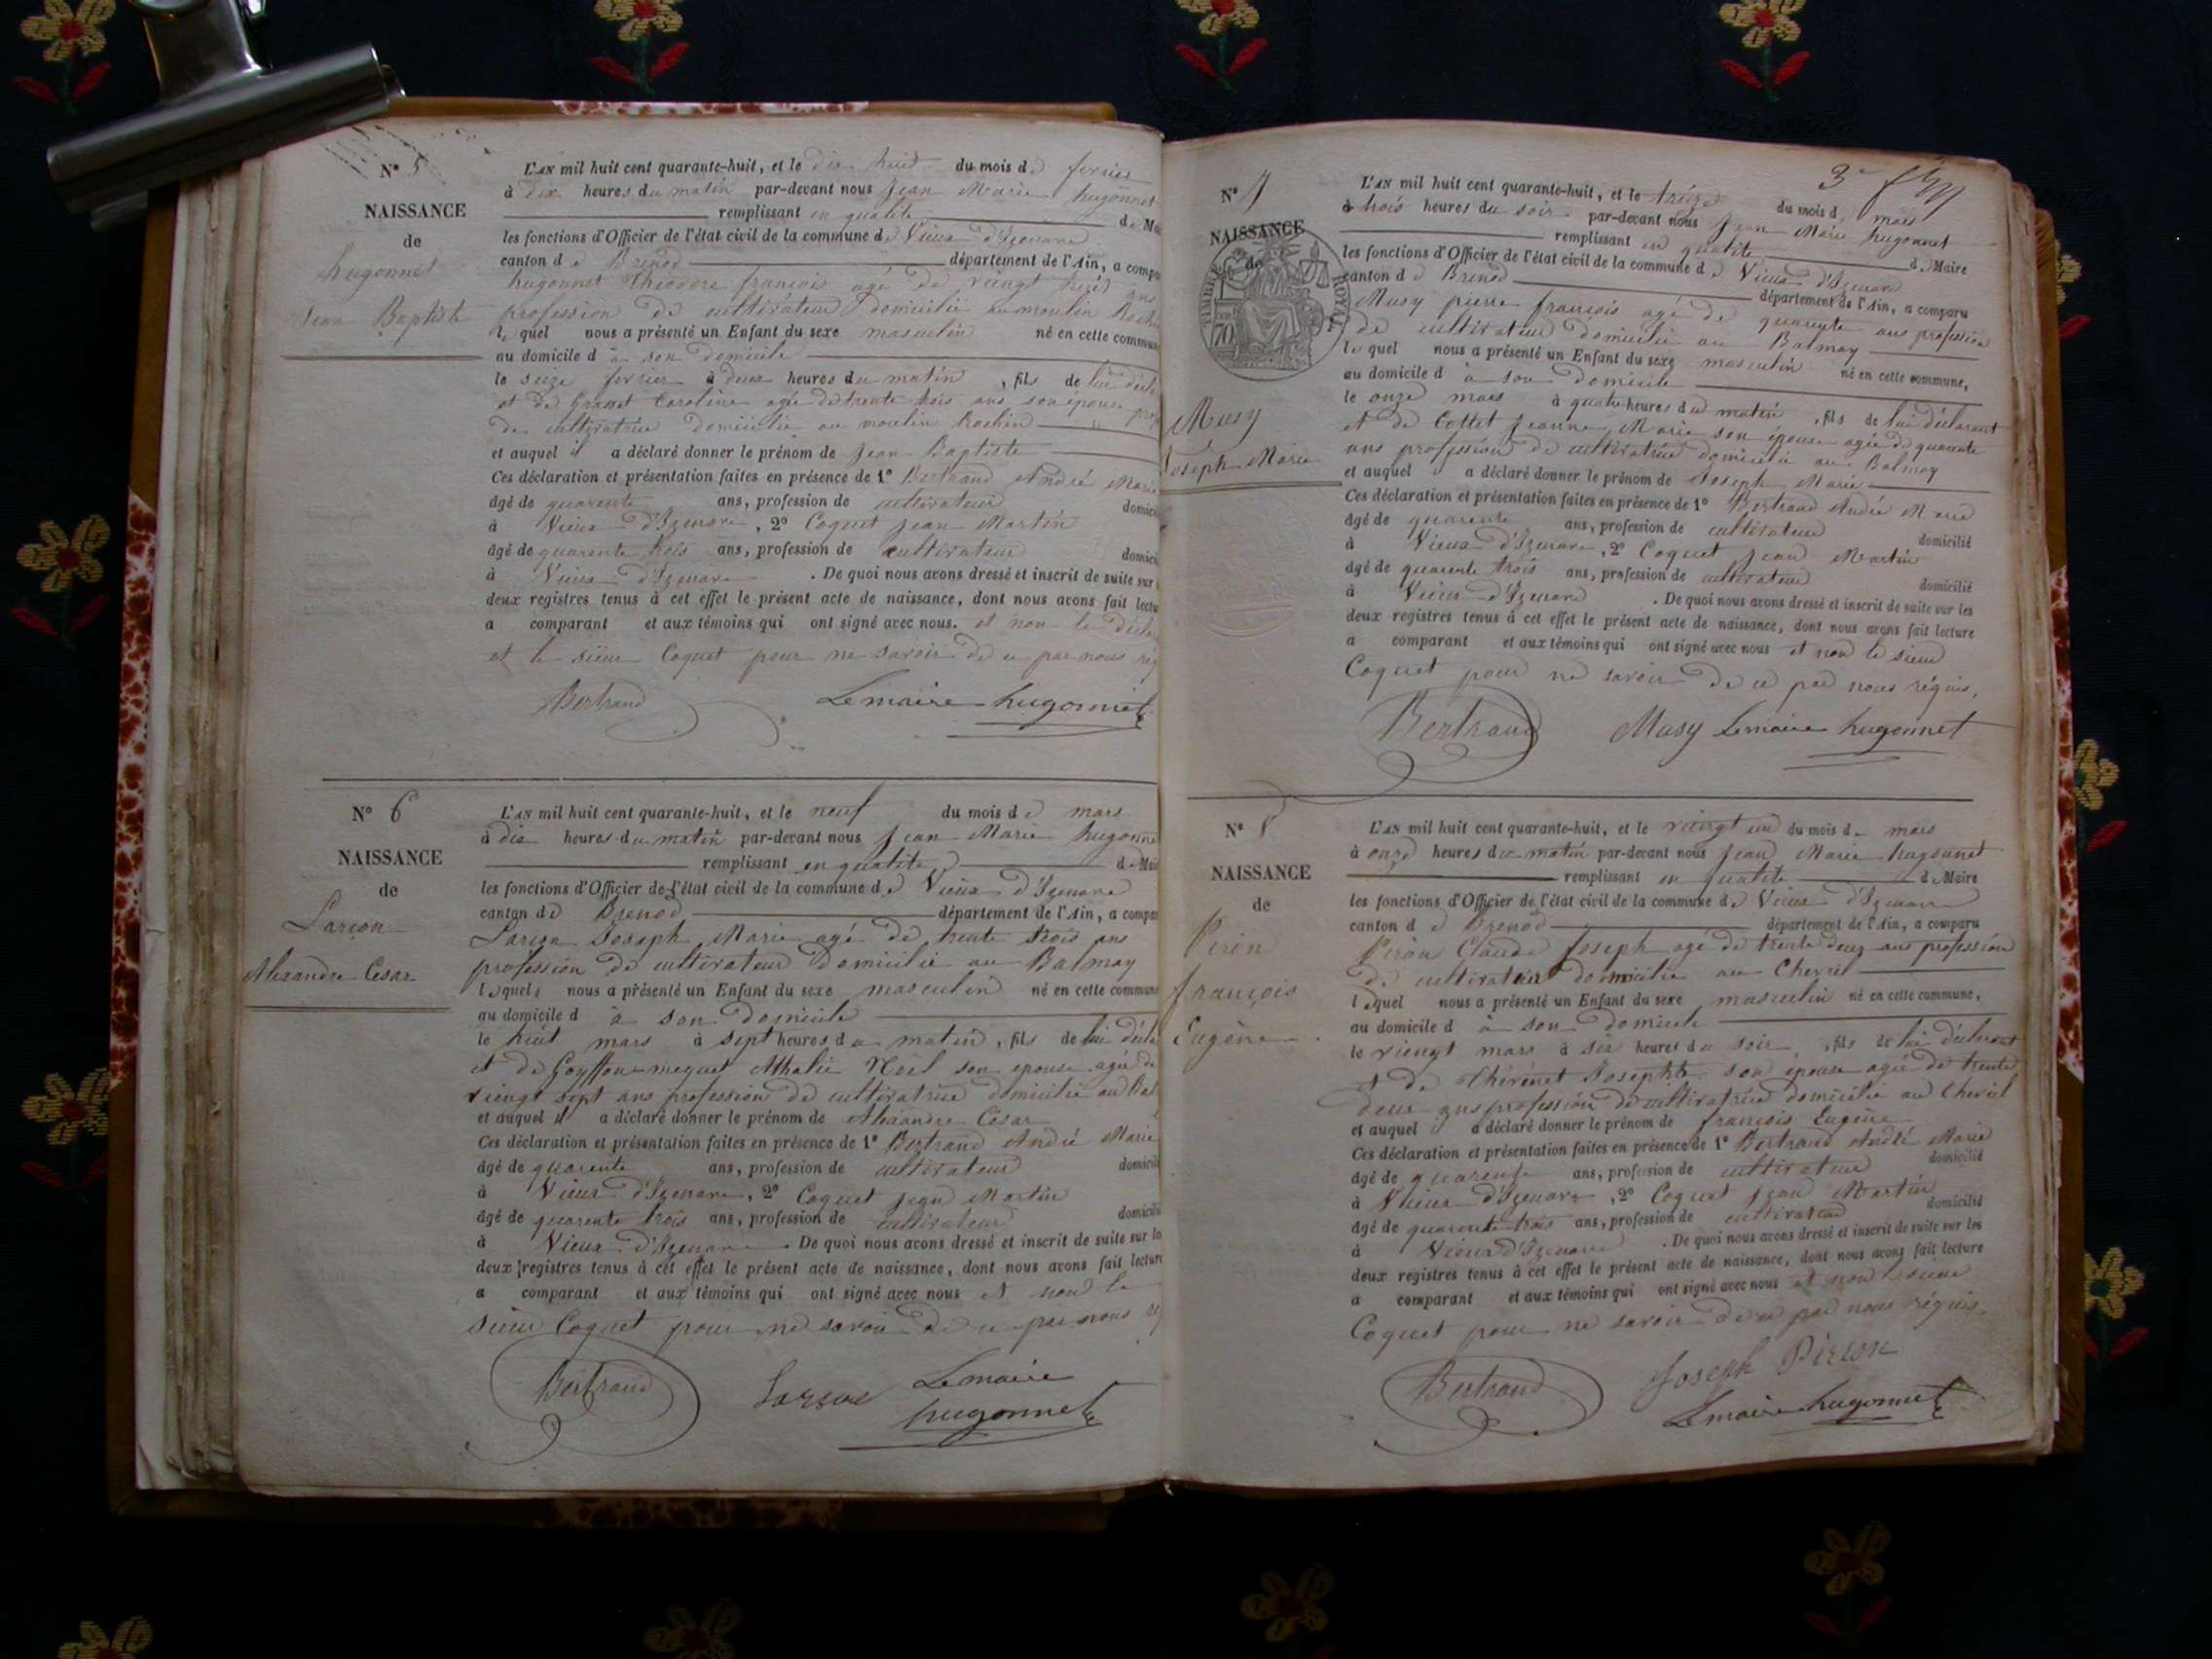 N° 5
NAISSANCE
de
hugonnet
Jean Baptiste
L'AN mil huit cent quarante-huit, et le dix huit du mois de fevrier
à dix heures du matin par-devant nous Jean Marie hugonnet
remplissant en qualité de Mai
les fonctions d'Officier de l'état civil de la commune de Vieux d'Izenave
canton de Brenod département de l'Ain, a compa
hugonnet Théodore françois agé de vingt huit ans
profession de cultivateur domicilié au moulin Rochin
lequel nous a présenté un Enfant du sexe masculin né en cette commune
au domicile d à son domicile
le seize fevrier à deux heures du matin, fils de lui décla
et de Caroline agée de trente trois ans son épouse prof
de cultivatrice domicilie au moulin Rochin
et auquel il a déclaré donner le prénom de Jean Baptiste
Ces déclaration et présentation faites en présence de 1° Bertrand André Marie
âgé de quarente ans, profession de cultivateur domici
à Vieux d'Izenave, 2° Coquet Jean Martin
âgé de quarente trois ans, profession de cultivateur domici
à Vieux d'Izenave. De quoi nous avons dressé et inscrit de suite sur
deux registres tenus à cet effet le présent acte de naissance, dont nous avons fait lectu
a comparant et aux témoins qui ont signé avec nous. et non le décla
et le sieur Coquet pour ne savoir de ce par nous réq
Bertrand Lemaire hugonnet
N° 6
NAISSANCE
de
Larçon
Alexandre Cesar
L'AN mil huit cent quarante-huit, et le neuf du mois de mars
à dix heures du matin par-devant nous Jean Marie hugonne
remplissant en qualité de Mai
les fonctions d'Officier de l'état civil de la commune de Vieux d'Izenave
canton de Brenod département de l'Ain, a compa
Larçon Joseph Marie agé de trente trois ans
profession de cultivateur domicilié au Balmay
lequel nous a présenté un Enfant du sexe masculin né en cette commune
au domicile d à son domicile
le huit mars à sept heures du matin, fils de lui décla
et de Goyffon meguet Athalie Noël son epouse agée de
viengt sept ans profession de cultivatrice domicilie au Bal
et auquel il a déclaré donner le prénom de Alexandre Cesar
Ces déclaration et présentation faites en présence de 1° Bertrand André Marie
âgé de quarente ans, profession de cultivateur domicili
à Vieux d'Izenave, 2° Coquet Jean Martin
âgé de quarente trois ans, profession de cultivateur domicili
à Vieux d'Izenave. De quoi nous avons dressé et inscrit de suite sur le
deux registres tenus à cet effet le présent acte de naissance, dont nous avons fait lecture
a comparant et aux témoins qui ont signé avec nous et non le
sieur Coquet pour ne savoir de ce par nous réq
Bertrand Larçon Lemaire
hugonnet
3e
N° 7
NAISSANCE
de
TIMBRE ROYAL
70
Musy
Joseph Marie
L'AN mil huit cent quarante-huit, et le treize du mois d mars
à trois heures du soir par-devant nous Jean Marie hugonnet
remplissant en qualité de Maire
les fonctions d'Officier de l'état civil de la commune de Vieux d'Izenave
canton de Brenod département de l'Ain, a comparu
Musy pierre françois agé de quarente ans profession
de cultivateur domicilié au Balmay
lequel nous a présenté un Enfant du sexe masculin né en cette commune,
au domicile d à son domicile
le onze mars à quatre heures du matin, fils de lui déclarant
et de Cottet Jeanne Marie son épouse agée de quarente
ans profession de cultivatrice domicilie au Balmay
et auquel a déclaré donner le prénom de Joseph Marie
Ces déclaration et présentation faites en présence de 1° Bertrand André Marie
âgé de quarente ans, profession de cultivateur domicilié
à Vieux d'Izenave, 2° Coquet Jean Martin
âgé de quarente trois ans, profession de cultivateur domicilié
à Vieux d'Izenave. De quoi nous avons dressé et inscrit de suite sur les
deux registres tenus à cet effet le présent acte de naissance, dont nous avons fait lecture
a comparant et aux témoins qui ont signé avec nous et non le sieur
Coquet pour ne savoir de ce par nous réquis.
Bertrand Musy Lemaire hugonnet
N° 8
NAISSANCE
de
Piron
françois
Eugène
L'AN mil huit cent quarante-huit, et le viengt un du mois de mars
à onze heures du matin par-devant nous Jean Marie hugonnet
remplissant en qualité de Maire
les fonctions d'Officier de l'état civil de la commune de Vieux d'Izenave
canton de Brenod département de l'Ain, a comparu
Piron Claude Joseph agé de trente deux ans profession
de cultivateur domicilié au Chevril
lequel nous a présenté un Enfant du sexe masculin né en cette commune,
au domicile d à son domicile
le viengt mars à six heures du soir, fils de lui déclarant
et de Josephte son epouse agée de trente
deux ans profession de cultivatrice domicilie au Chevril
et auquel a déclaré donner le prénom de françois Eugène
Ces déclaration et présentation faites en présence de 1° Bertrand André Marie
âgé de quarente ans, profession de cultivateur domicilié
à Vieux d'Izenave, 2° Coquet Jean Martin
âgé de quarente trois ans, profession de cultivateur domicilié
à Vieux d'Izenave. De quoi nous avons dressé et inscrit de suite sur les
deux registres tenus à cet effet le présent acte de naissance, dont nous avons fait lecture
a comparant et aux témoins qui ont signé avec nous et non le sieur
Coquet pour ne savoir de ce par nous réquis.
Bertrand Joseph Piron
Lemaire hugonnet